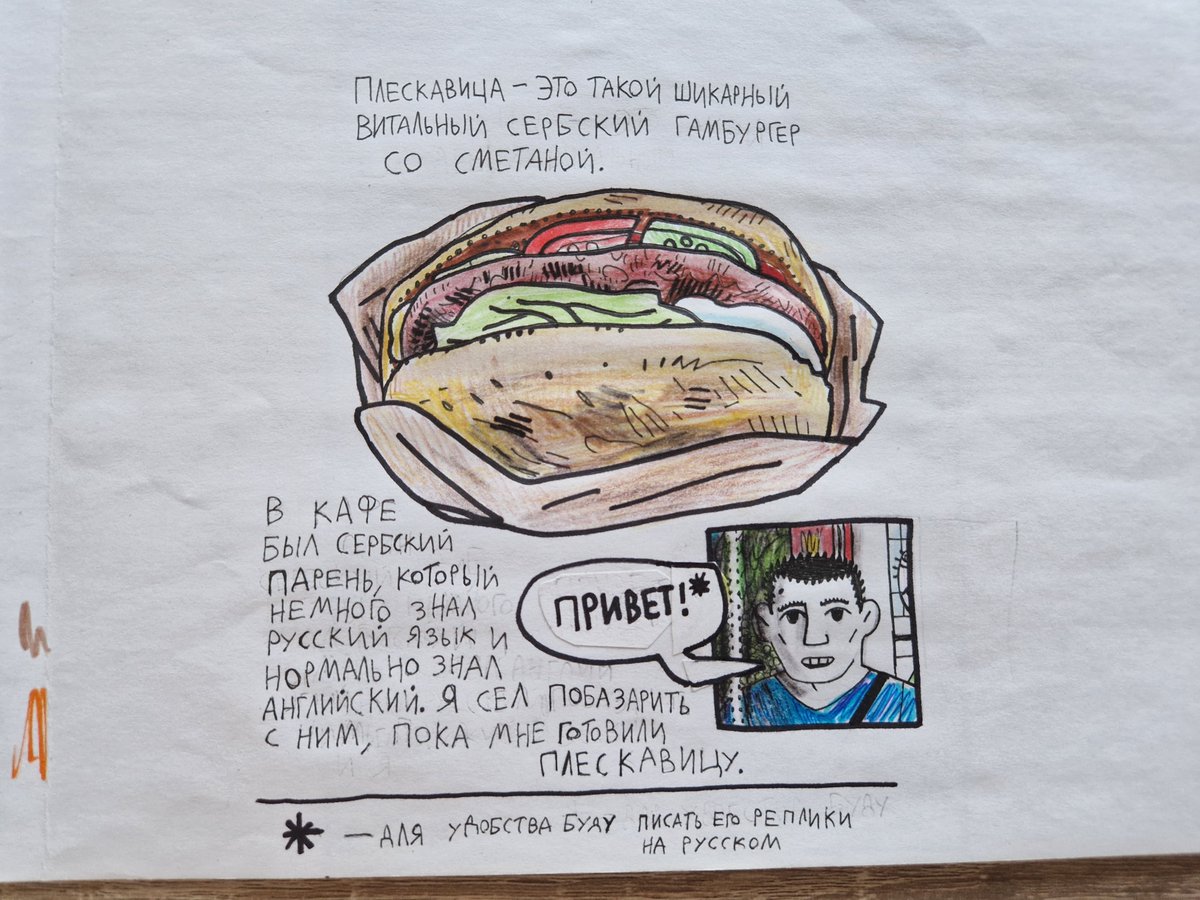 ПЛЕСКАВИЦА – ЭТО ТАКОЙ ШИКАРНЫЙ
ВИТАЛЬНЫЙ СЕРБСКИЙ ГАМБУРГЕР
СО СМЕТАНОЙ.
В КАФЕ
БЫЛ СЕРБСКИЙ
ПАРЕНЬ, КОТОРЫЙ
НЕМНОГО ЗНАЛ
РУССКИЙ ЯЗЫК И
НОРМАЛЬНО ЗНАЛ
АНГЛИЙСКИЙ. Я СЕЛ ПОБАЗАРИТЬ
С НИМ, ПОКА МНЕ ГОТОВИЛИ
ПЛЕСКАВИЦУ.
ПРИВЕТ!*
* – ДЛЯ УДОБСТВА БУДУ ПИСАТЬ ЕГО РЕПЛИКИ
НА РУССКОМ